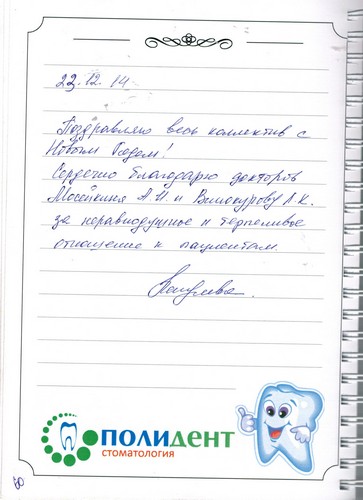 22.12.14
Поздравляю весь коллектив с
Новым Годом!
Сердечно благодарю докторов
Мосейкина А.И. и Винокурову Л.К.
за неравнодушное и терпеливое
отношение к пациентам.
ПОЛИДЕНТ
СТОМАТОЛОГИЯ